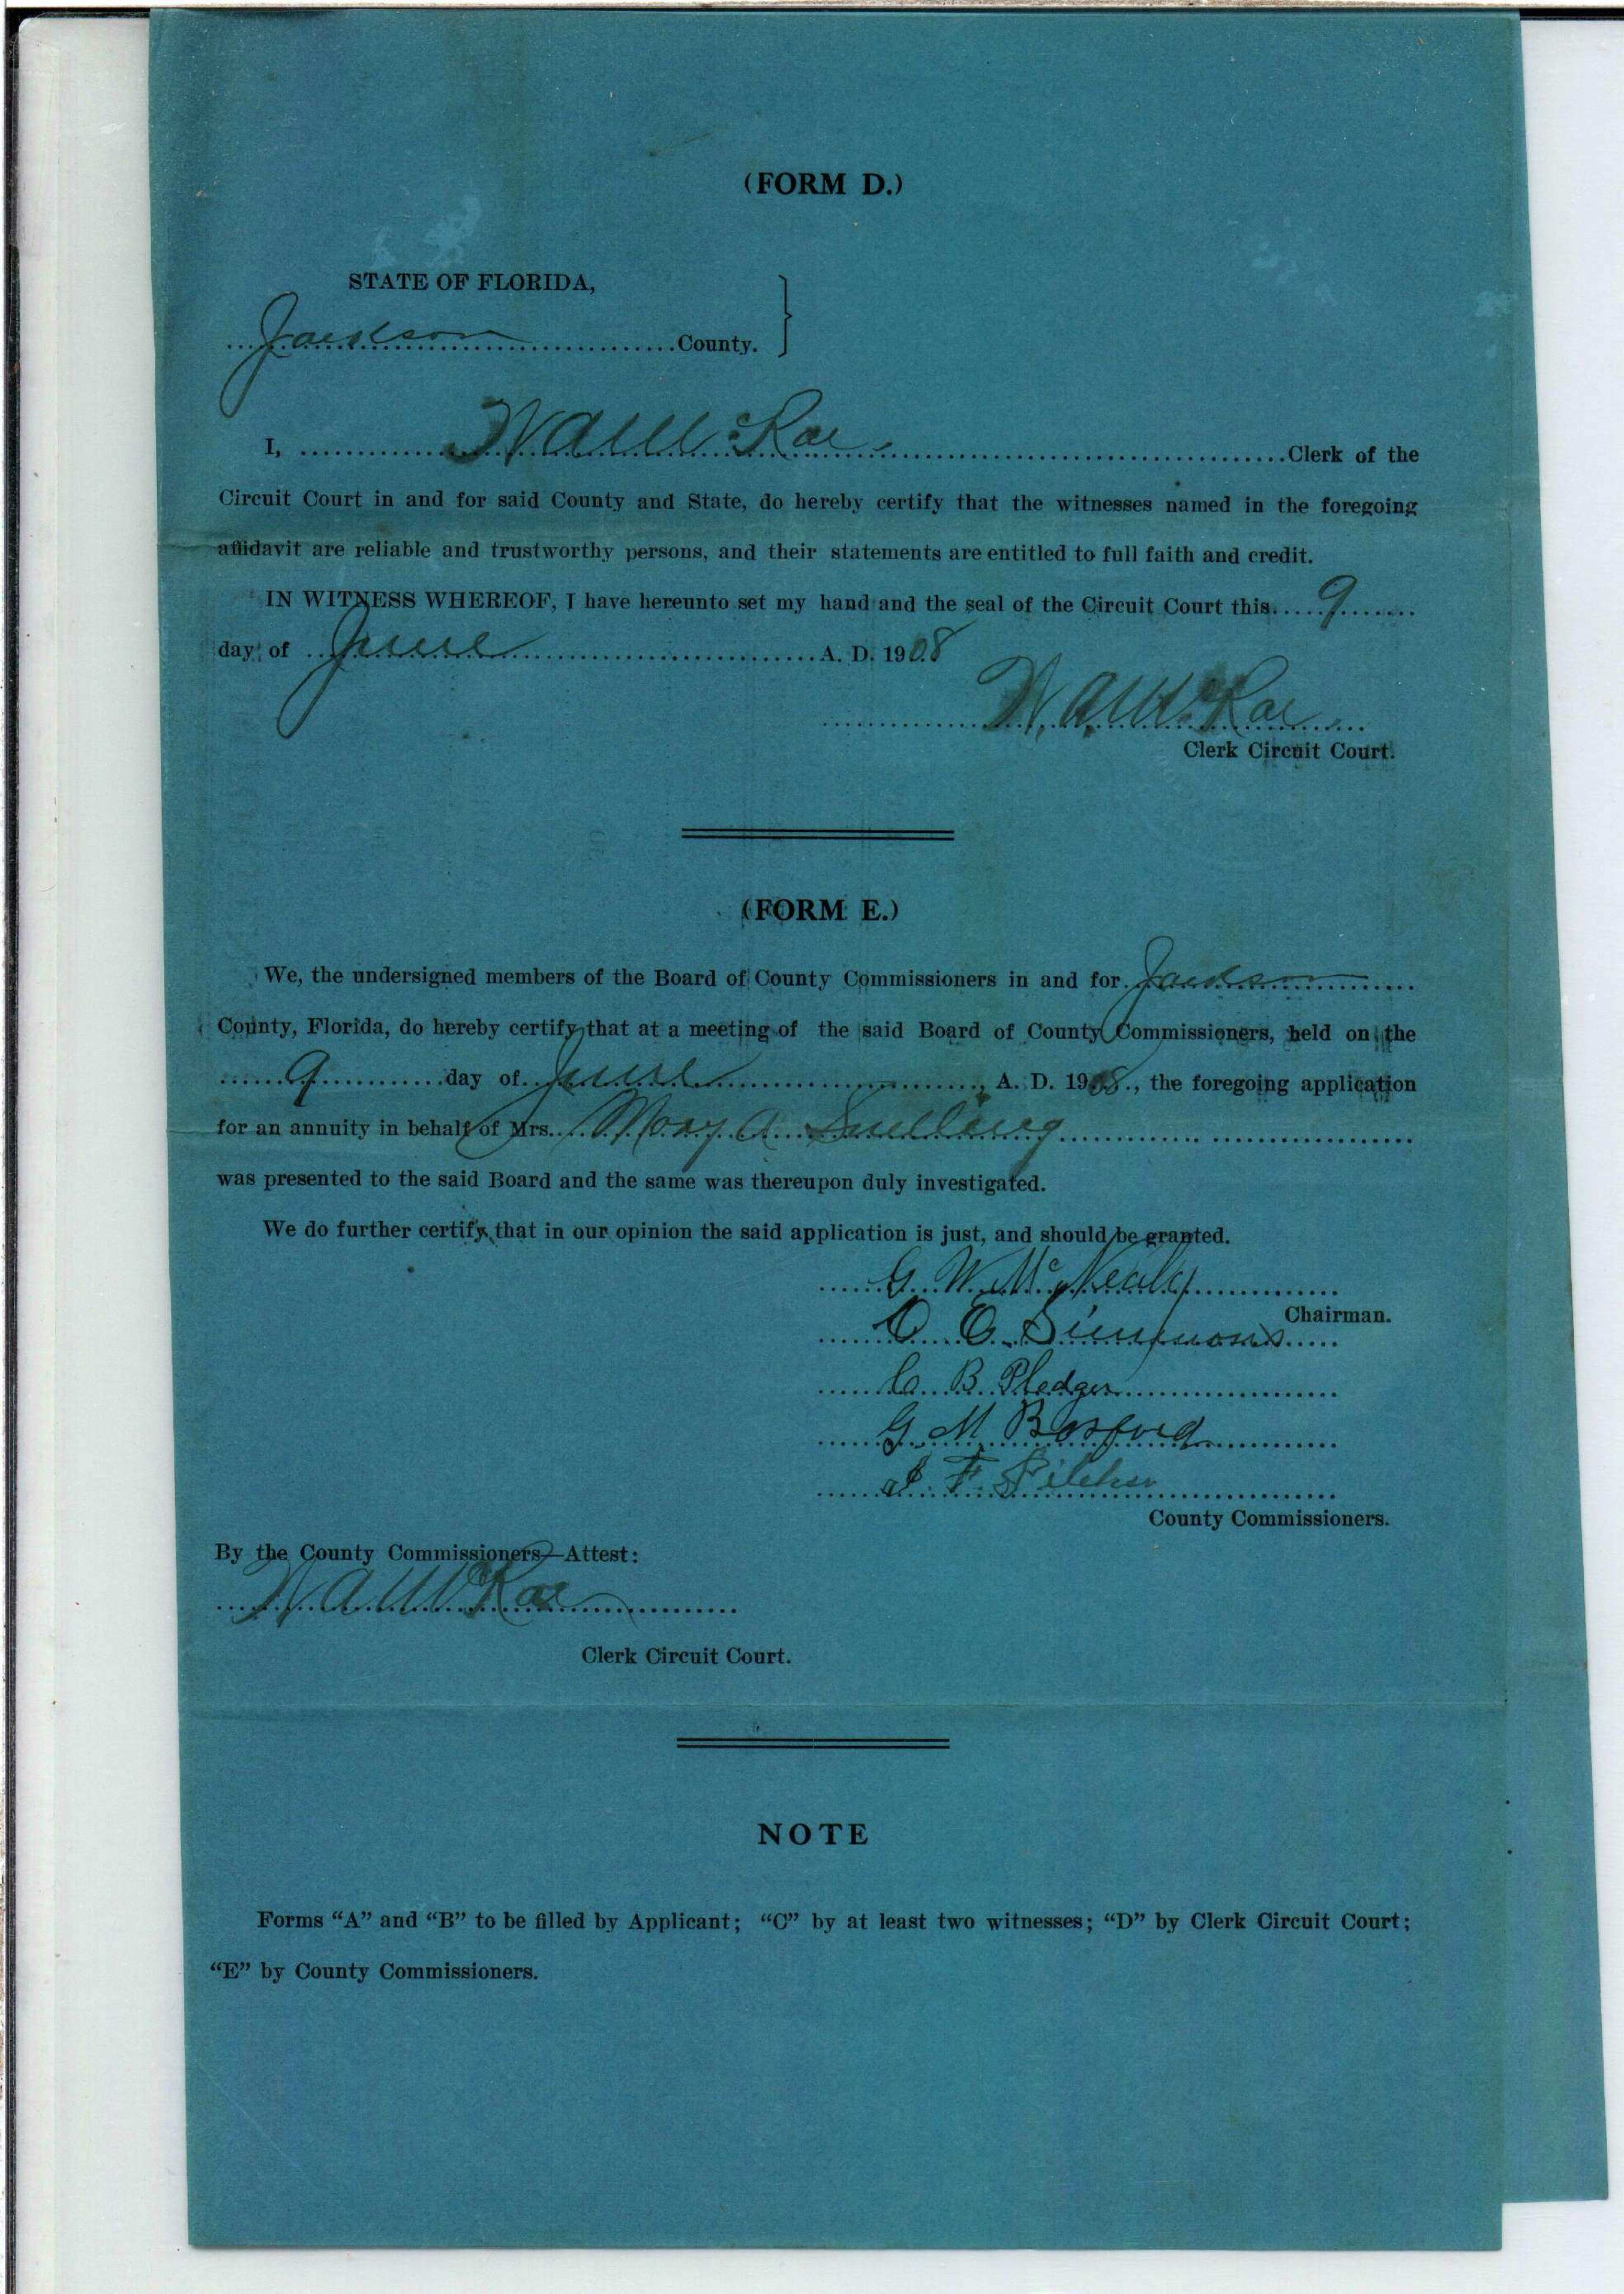 (FORM D.)
STATE OF FLORIDA,
Jackson County.
I, W A McRae Clerk of the
Circuit Court in and for said County and State, do hereby certify that the witnesses named in the foregoing
affidavit are reliable and trustworthy persons, and their statements are entitled to full faith and credit.
IN WITNESS WHEREOF, I have hereunto set my hand and the seal of the Circuit Court this 9
day of June A. D. 1908
W. A. McRae
Clerk Circuit Court.
(FORM E.)
We, the undersigned members of the Board of County Commissioners in and for Jackson
County, Florida, do hereby certify that at a meeting of the said Board of County Commissioners, held on the
9 day of June, A. D. 1908., the foregoing application
for an annuity in behalf of Mrs. Mary A Snelling
was presented to the said Board and the same was thereupon duly investigated.
We do further certify, that in our opinion the said application is just, and should be granted.
G. W. McNealy
Chairman.
Simmons
C. B. Pledger
G. M. Bosford
J. F. Pilcher
County Commissioners.
By the County Commissioners—Attest:
W A McRae
Clerk Circuit Court.
NOTE
Forms "A" and "B" to be filled by Applicant; "C" by at least two witnesses; "D" by Clerk Circuit Court;
"E" by County Commissioners.